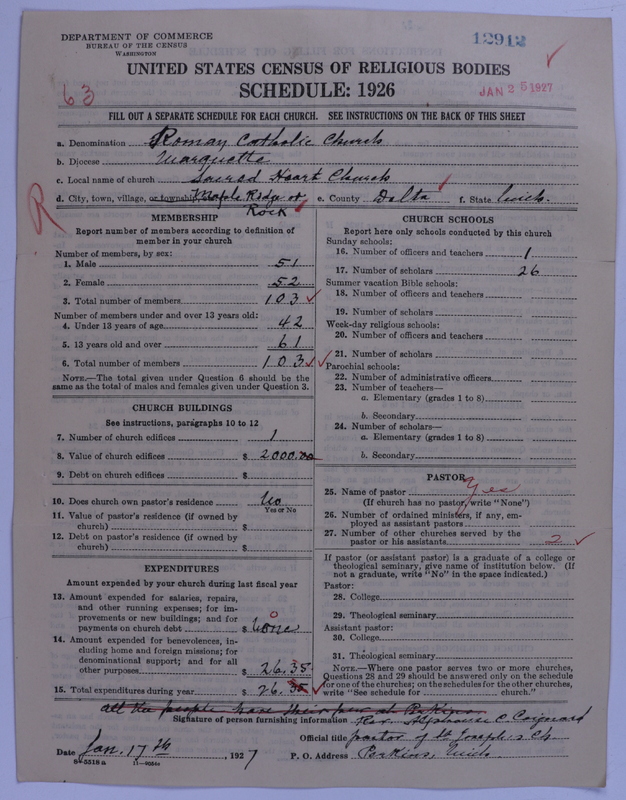 DEPARTMENT OF COMMERCE
BUREAU OF THE CENSUS
WASHINGTON
12912
JAN 25 1927
63
UNITED STATES CENSUS OF RELIGIOUS BODIES
SCHEDULE: 1926
FILL OUT A SEPARATE SCHEDULE FOR EACH CHURCH. SEE INSTRUCTIONS ON THE BACK OF THIS SHEET
a. Denomination Roman Catholic Church
b. Diocese Marquette
c. Local name of church Sacred Heart Church
d. City, town, village, or township Maple Ridge or e. County Delta f. State Mich.
Rock
R
MEMBERSHIP
Report number of members according to definition of
member in your church
Number of members, by sex:
1. Male 51
2. Female 52
3. Total number of members 103
Number of members under and over 13 years old:
4. Under 13 years of age 42
5. 13 years old and over 61
6. Total number of members 103
NOTE.—The total given under Question 6 should be the
same as the total of males and females given under Question 3.
CHURCH BUILDINGS
See instructions, paragraphs 10 to 12
7. Number of church edifices 1
8. Value of church edifices $ 2000.00
9. Debt on church edifices $
10. Does church own pastor's residence No
Yes or No
11. Value of pastor's residence (if owned by
church) $
12. Debt on pastor's residence (if owned by
church) $
EXPENDITURES
Amount expended by your church during last fiscal year
13. Amount expended for salaries, repairs,
and other running expenses; for im-
provements or new buildings; and for
payments on church debt $ None
0
14. Amount expended for benevolences, in-
cluding home and foreign missions; for
denominational support; and for all
other purposes $ 26.35
15. Total expenditures during year $ 26.35
CHURCH SCHOOLS
Report here only schools conducted by this church
Sunday schools:
16. Number of officers and teachers 1
17. Number of scholars 26
Summer vacation Bible schools:
18. Number of officers and teachers
19. Number of scholars
Week-day religious schools:
20. Number of officers and teachers
21. Number of scholars
Parochial schools:
22. Number of administrative officers
23. Number of teachers—
a. Elementary (grades 1 to 8)
b. Secondary
24. Number of scholars—
a. Elementary (grades 1 to 8)
b. Secondary
PASTOR
25. Name of pastor Yes
(If church has no pastor, write "None")
26. Number of ordained ministers, if any, em-
ployed as assistant pastors
27. Number of other churches served by the
pastor or his assistants 2
If pastor (or assistant pastor) is a graduate of a college or
theological seminary, give name of institution below. (If
not a graduate, write "No" in the space indicated.)
Pastor:
28. College
29. Theological seminary
Assistant pastor:
30. College
31. Theological seminary
NOTE.—Where one pastor serves two or more churches,
Questions 28 and 29 should be answered only on the schedule
for one of the churches; on the schedules for the other churches,
write "See schedule for church."
all the people have their pew at Perkins
Signature of person furnishing information Rev. Alphonse C. Coignard
Official title pastor of St Joseph's Ch
Date Jan. 17th, 1927 P. O. Address Perkins, Mich.
8-5518 a